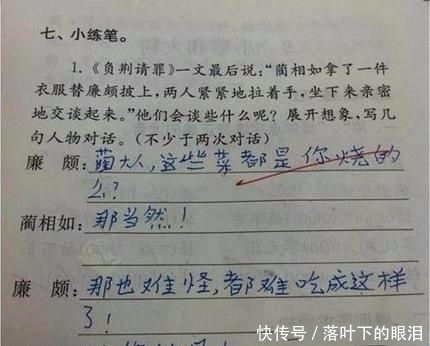 七、小练笔。
1.《负荆请罪》一文最后说:“蔺相如拿了一件
衣服替廉颇披上,两人紧紧地拉着手,坐下来亲密
地交谈起来。”他们会谈些什么呢?展开想象,写几
句人物对话。(不少于两次对话)
廉 颇:蔺大人,这些菜都是你烧的
么?
蔺相如:那当然!
廉 颇:那也难怪,都难吃成这样
了!
快传号/落叶下的眼泪